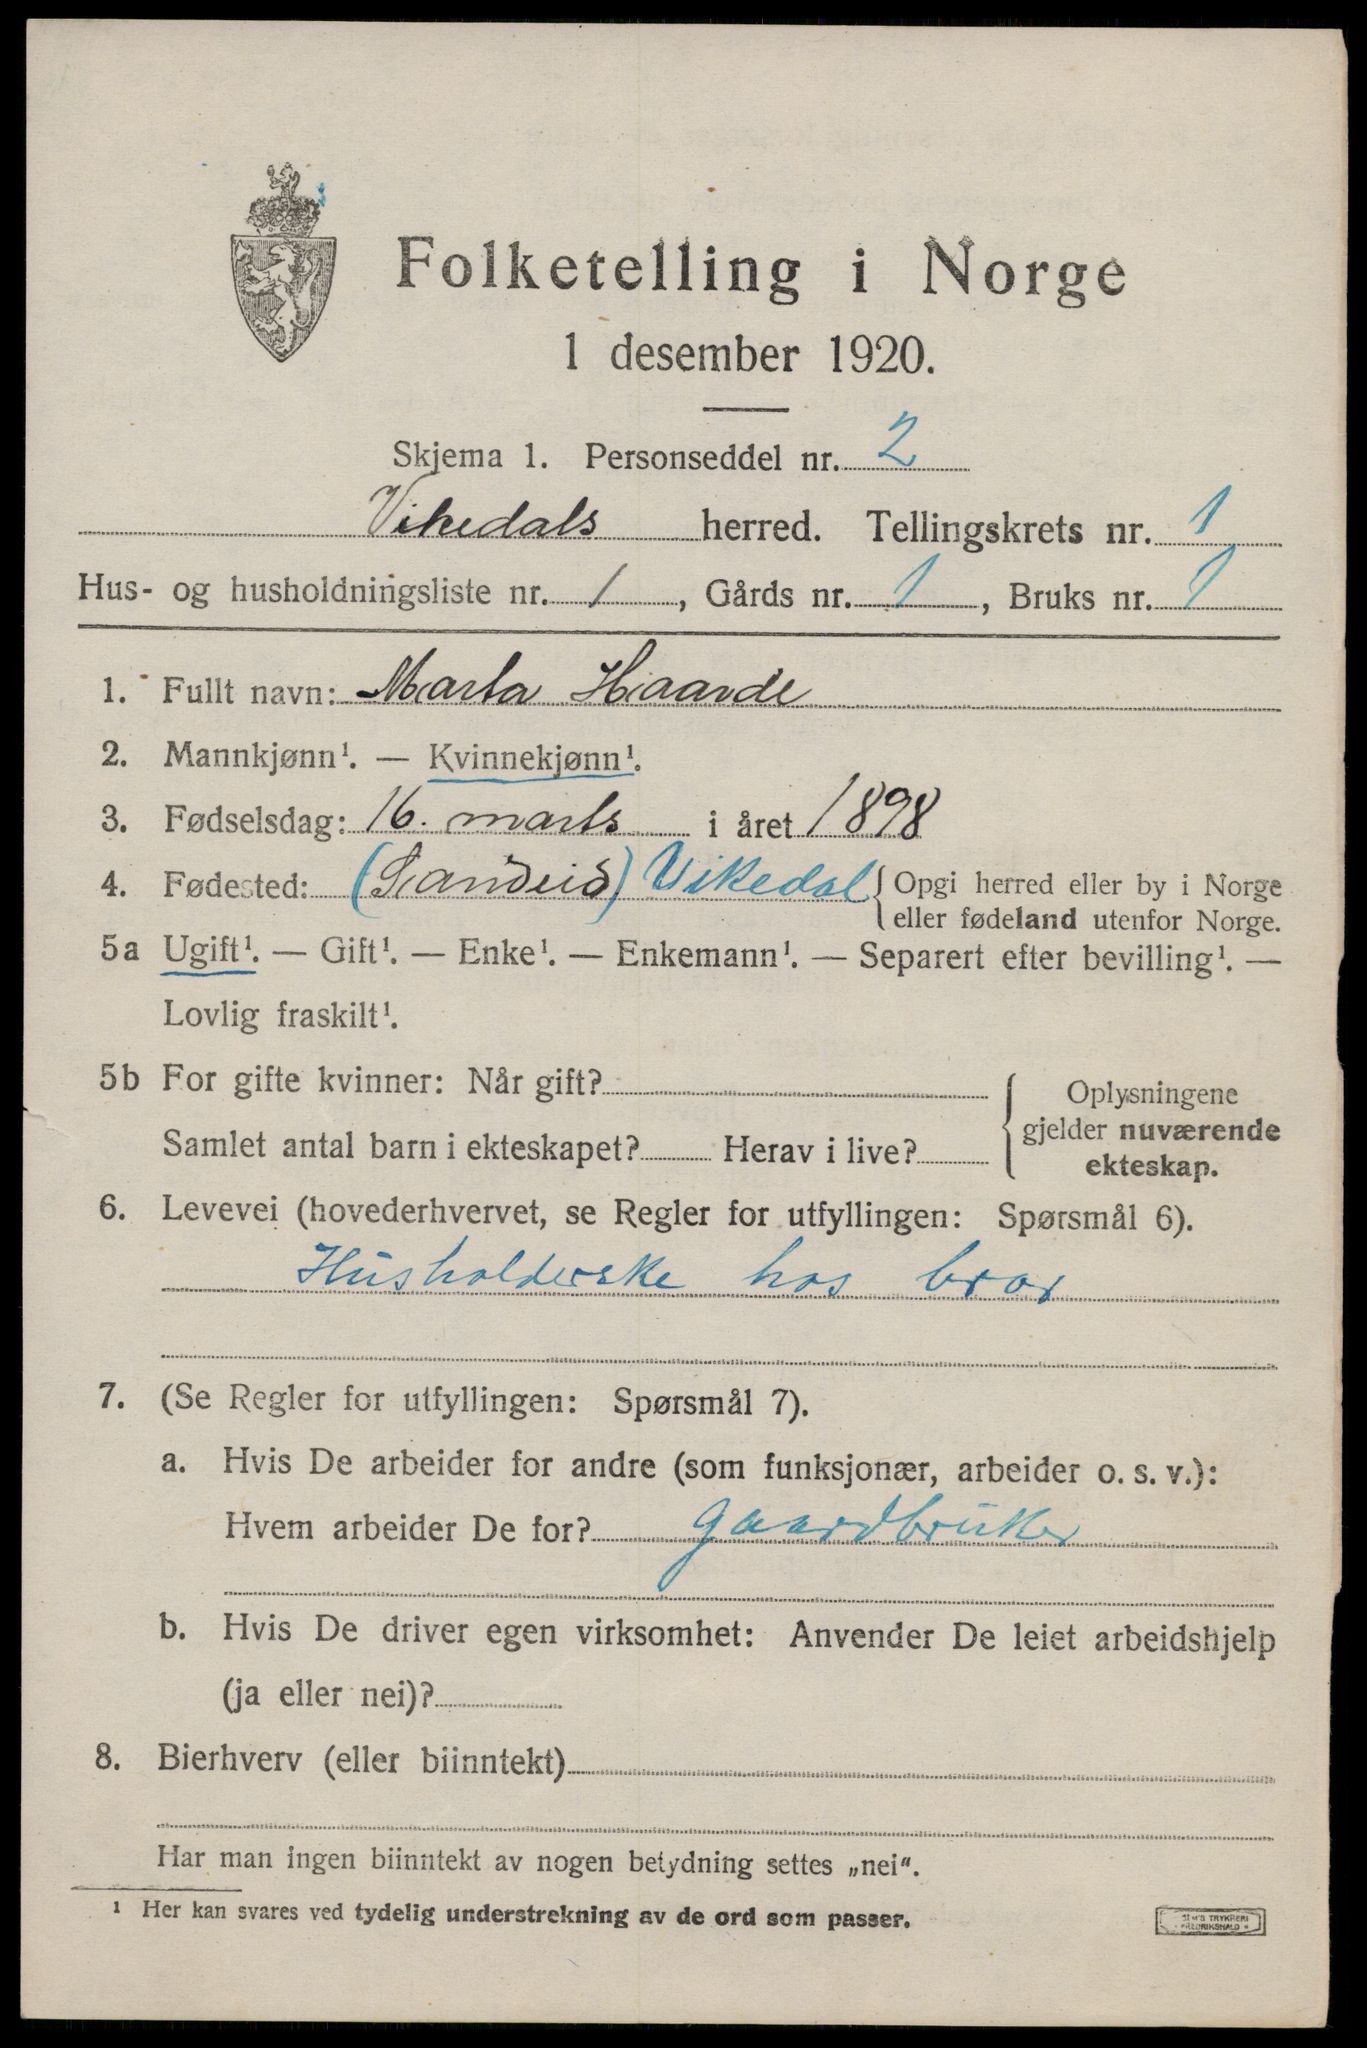 Folketelling i Norge
1 desember 1920.
Skjema 1. Personseddel nr. 2
Vikedals herred. Tellingskrets nr. 1
Hus- og husholdningsliste nr. 1, Gårds nr. 1, Bruks nr. 1
1. Fullt navn: Marta Haavde
2. Mannkjønn¹. — Kvinnekjønn¹.
3. Fødselsdag: 16. marts i året 1898
4. Fødested: (Sandeid) Vikedal { Opgi herred eller by i Norge
eller fødeland utenfor Norge.
5a Ugift¹. — Gift¹. — Enke¹. — Enkemann¹. — Separert efter bevilling¹. —
Lovlig fraskilt¹.
5b For gifte kvinner: Når gift?
Samlet antal barn i ekteskapet? Herav i live?
Oplysningene
gjelder nuværende
ekteskap.
6. Levevei (hovederhvervet, se Regler for utfyllingen: Spørsmål 6).
Husholderske hos bror
7. (Se Regler for utfyllingen: Spørsmål 7).
a. Hvis De arbeider for andre (som funksjonær, arbeider o. s. v.):
Hvem arbeider De for? gaardbruker
b. Hvis De driver egen virksomhet: Anvender De leiet arbeidshjelp
(ja eller nei)?
8. Bierhverv (eller biinntekt)
Har man ingen biinntekt av nogen betydning settes „nei“.
¹ Her kan svares ved tydelig understrekning av de ord som passer.
TRYKKERI
FREDRIKSHALD